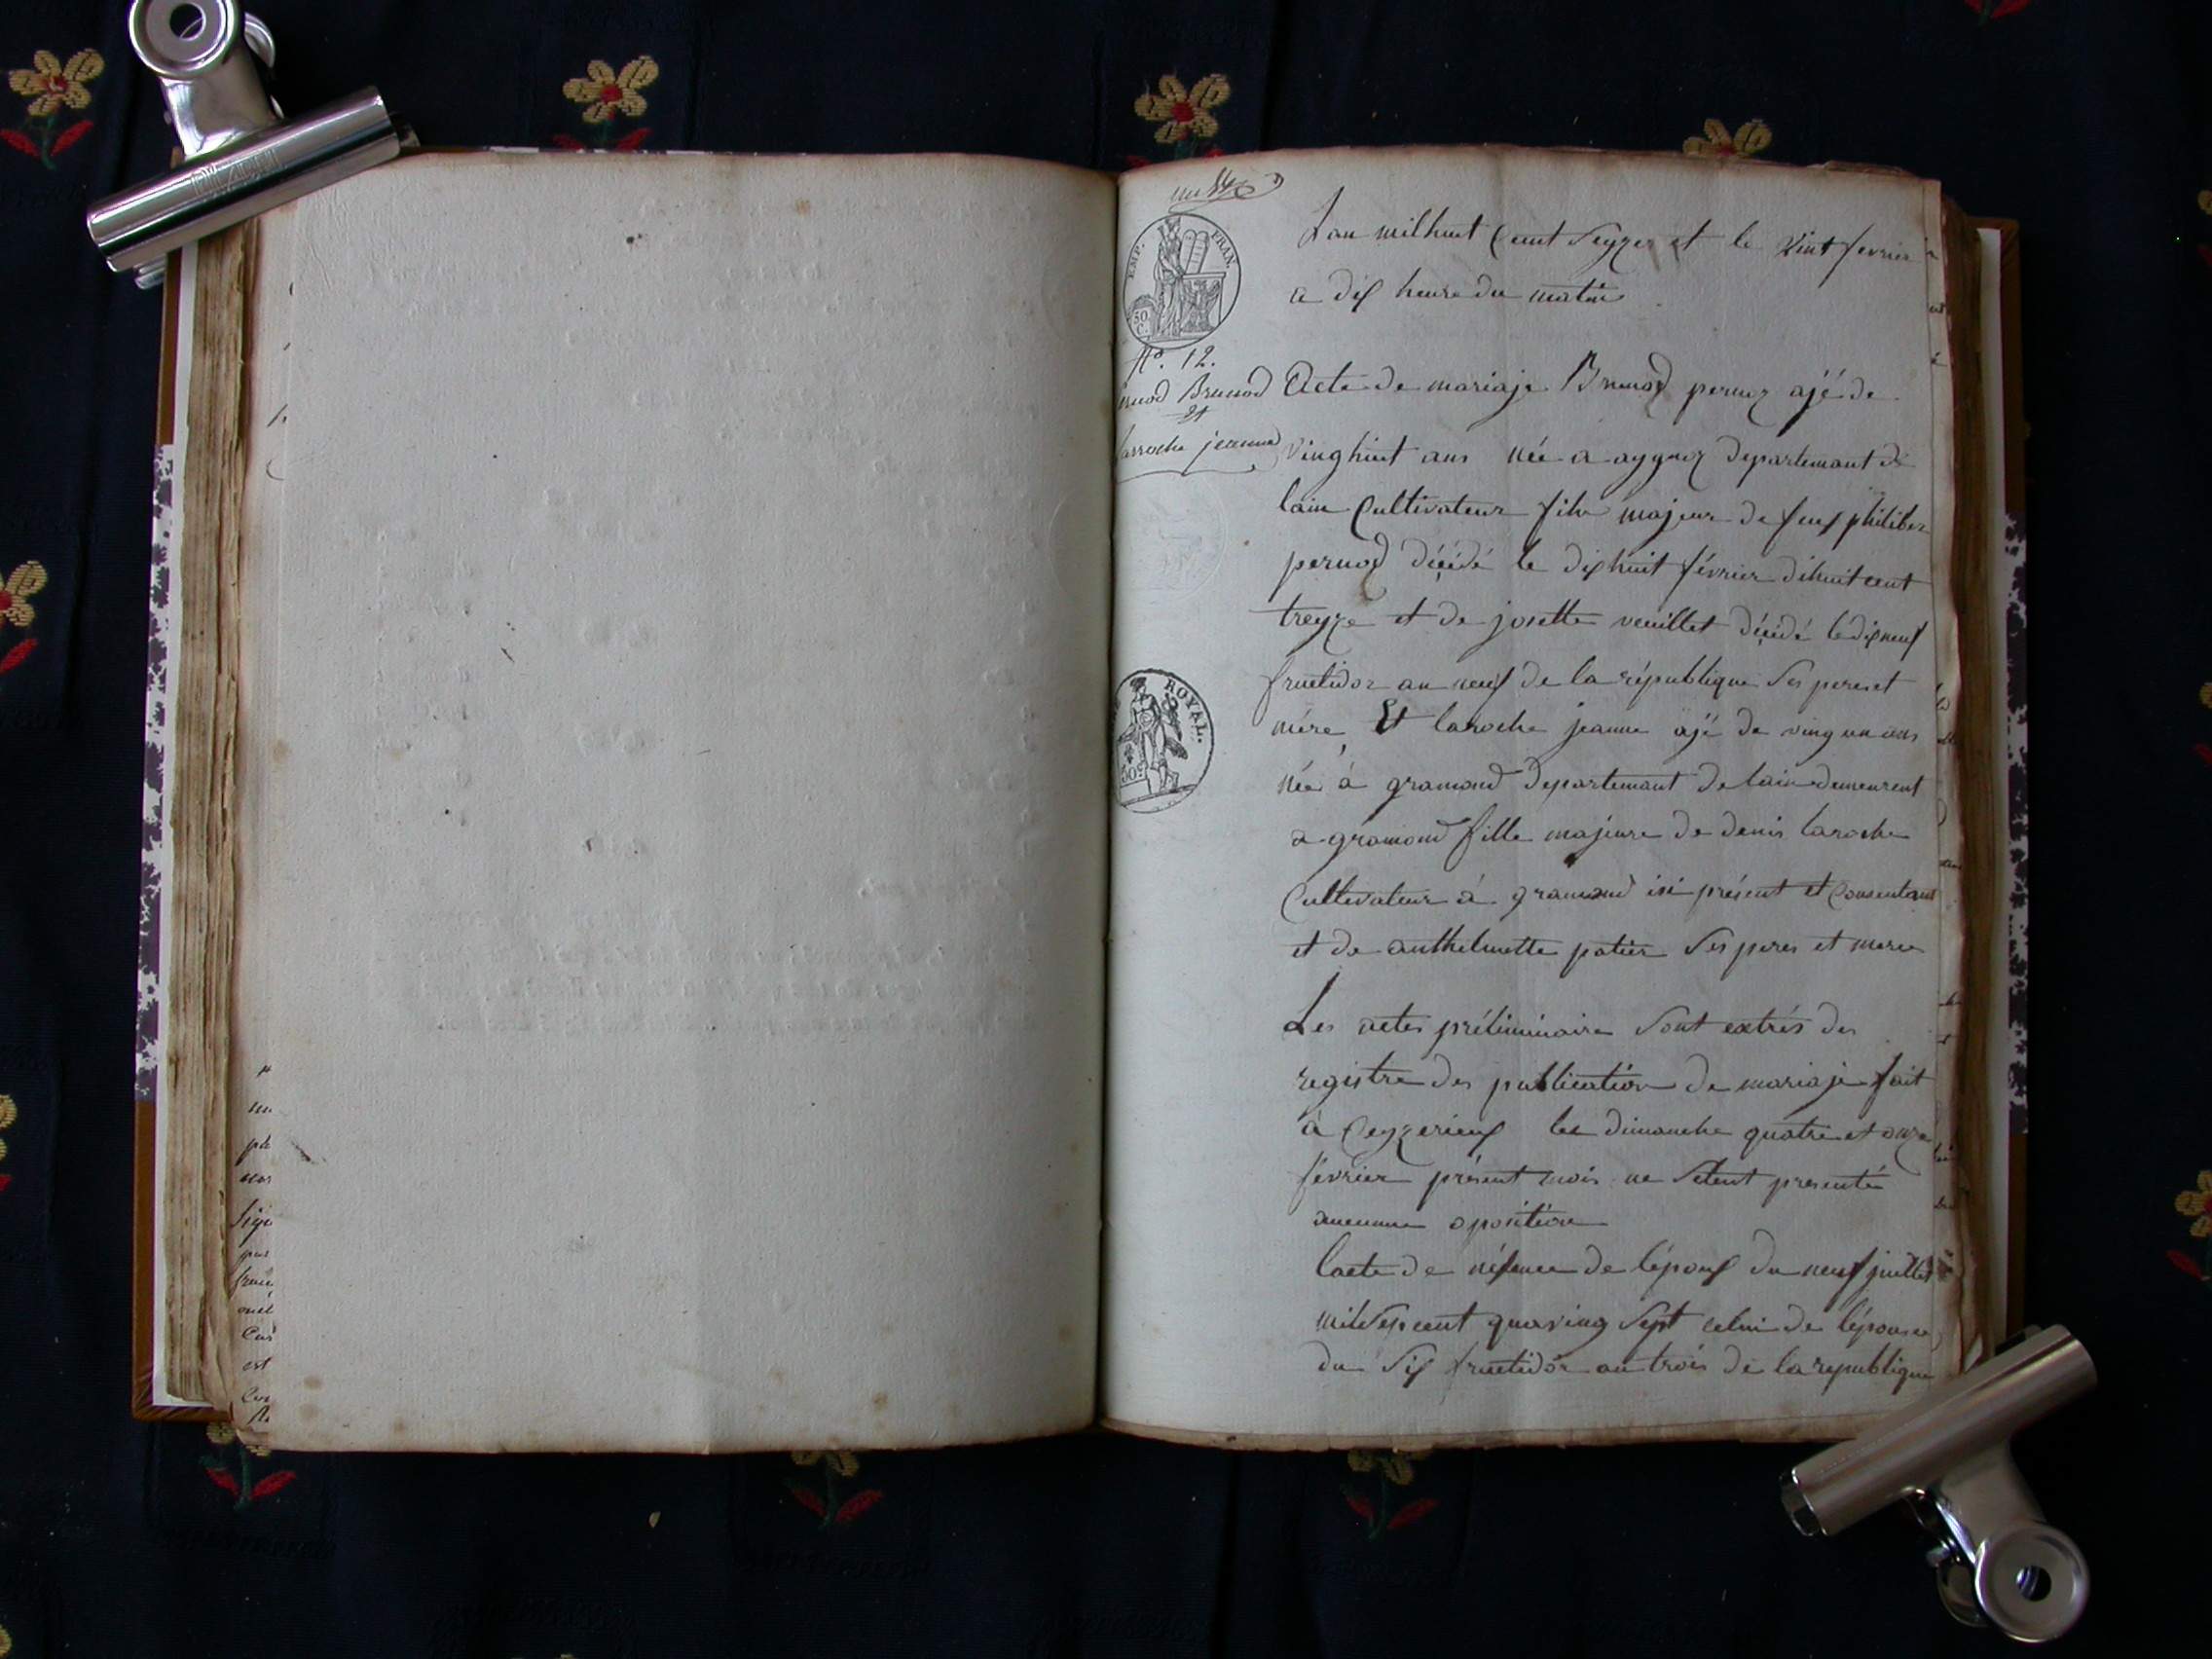 EMP. FRAN.
50 C.
Lan mil huit Cent Seyze et le Vint fevrier
a dix heure du matin
N°. 12.
Brunod
et
larroche jeanne
Acte de mariaje Brunod pernoz ajé de
vinghuit ans née a aygnoz departemant de
lain Cultivateur fils majeur de feuf philiber
pernod décidé le dixhuit février dihuitcent
treyze et de josette veuillet décidé le dixneuf
fructidor an neuf de la république Ses peres et
mére Et laroche jeanne ajé de ving un ans
née à gramond departemant de lain demeurent
a gramond fille majeure de denis laroche
Cultivateur à gramond isi présent et Consentant
et de anthelmette patier Ses peres et mere
ROYAL.
50 C
Les actes préliminaire Sont extrés des
registre des publication de mariaje fait
à Ceyzerieuf les dimanche quatre et onze
février présent mois ne Setent presenté
aucunne oposition
lacte de nésence de lépouf du neuf juillet
mil Sepcent quaving Sept celui de lépouse
du Six fructidor an trois de la republique